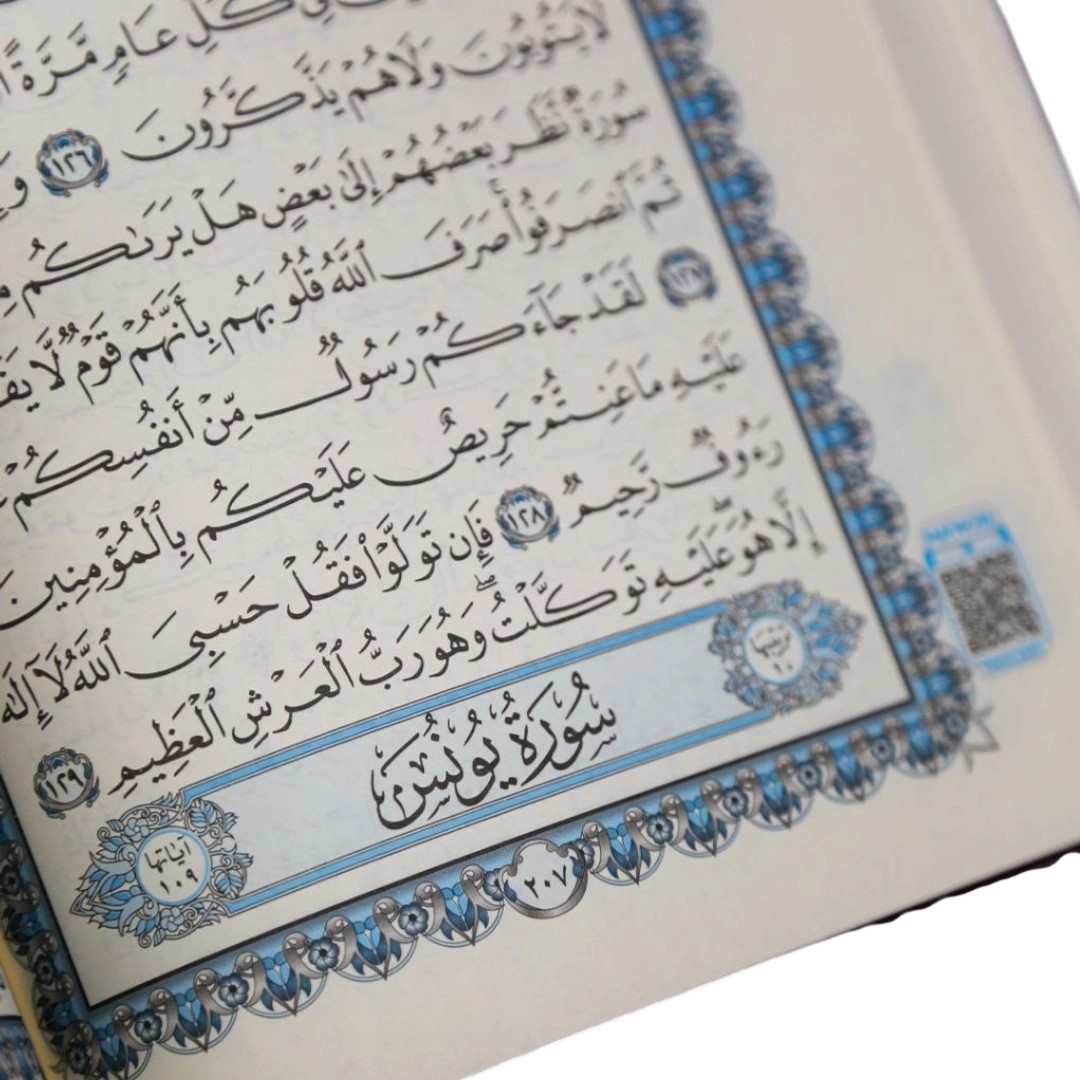 كُلِّ عَامٍ مَّرَّةً
لَا يَتُوبُونَ وَلَا هُمْ يَذَّكَّرُونَ ١٢٦
سُورَةٌ نَّظَرَ بَعْضُهُمْ إِلَىٰ بَعْضٍ هَلْ يَرَىٰكُم
ثُمَّ ٱنصَرَفُوا۟ صَرَفَ ٱللَّهُ قُلُوبَهُم بِأَنَّهُمْ قَوْمٌ لَّا
١٢٧ لَقَدْ جَآءَكُمْ رَسُولٌ مِّنْ أَنفُسِكُمْ
عَلَيْهِ مَا عَنِتُّمْ حَرِيصٌ عَلَيْكُم بِٱلْمُؤْمِنِينَ
رَءُوفٌ رَّحِيمٌ ١٢٨ فَإِن تَوَلَّوْا۟ فَقُلْ حَسْبِىَ ٱللَّهُ لَآ إِلَٰهَ
إِلَّا هُوَ ۖ عَلَيْهِ تَوَكَّلْتُ ۖ وَهُوَ رَبُّ ٱلْعَرْشِ ٱلْعَظِيمِ ١٢٩
ترتيبها ١٠
سُورَةُ يُونُسَ
آياتها ١٠٩
٢٠٧